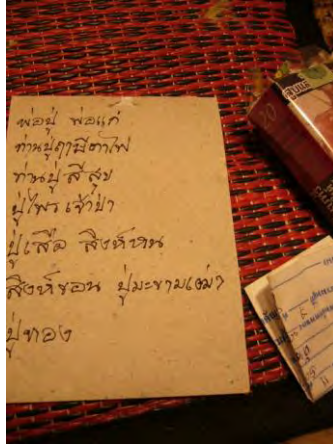 พ่อปู่ พ่อแก่
ท่านปู่ฤาษีตาไฟ
ท่านปู่สีสุข
ปู่ไพร เจ้าป่า
ปู่เสือ สิงห์หาน
สิงห์ขอน ปู่มะขามเฒ่า
ปู่ทอง
20